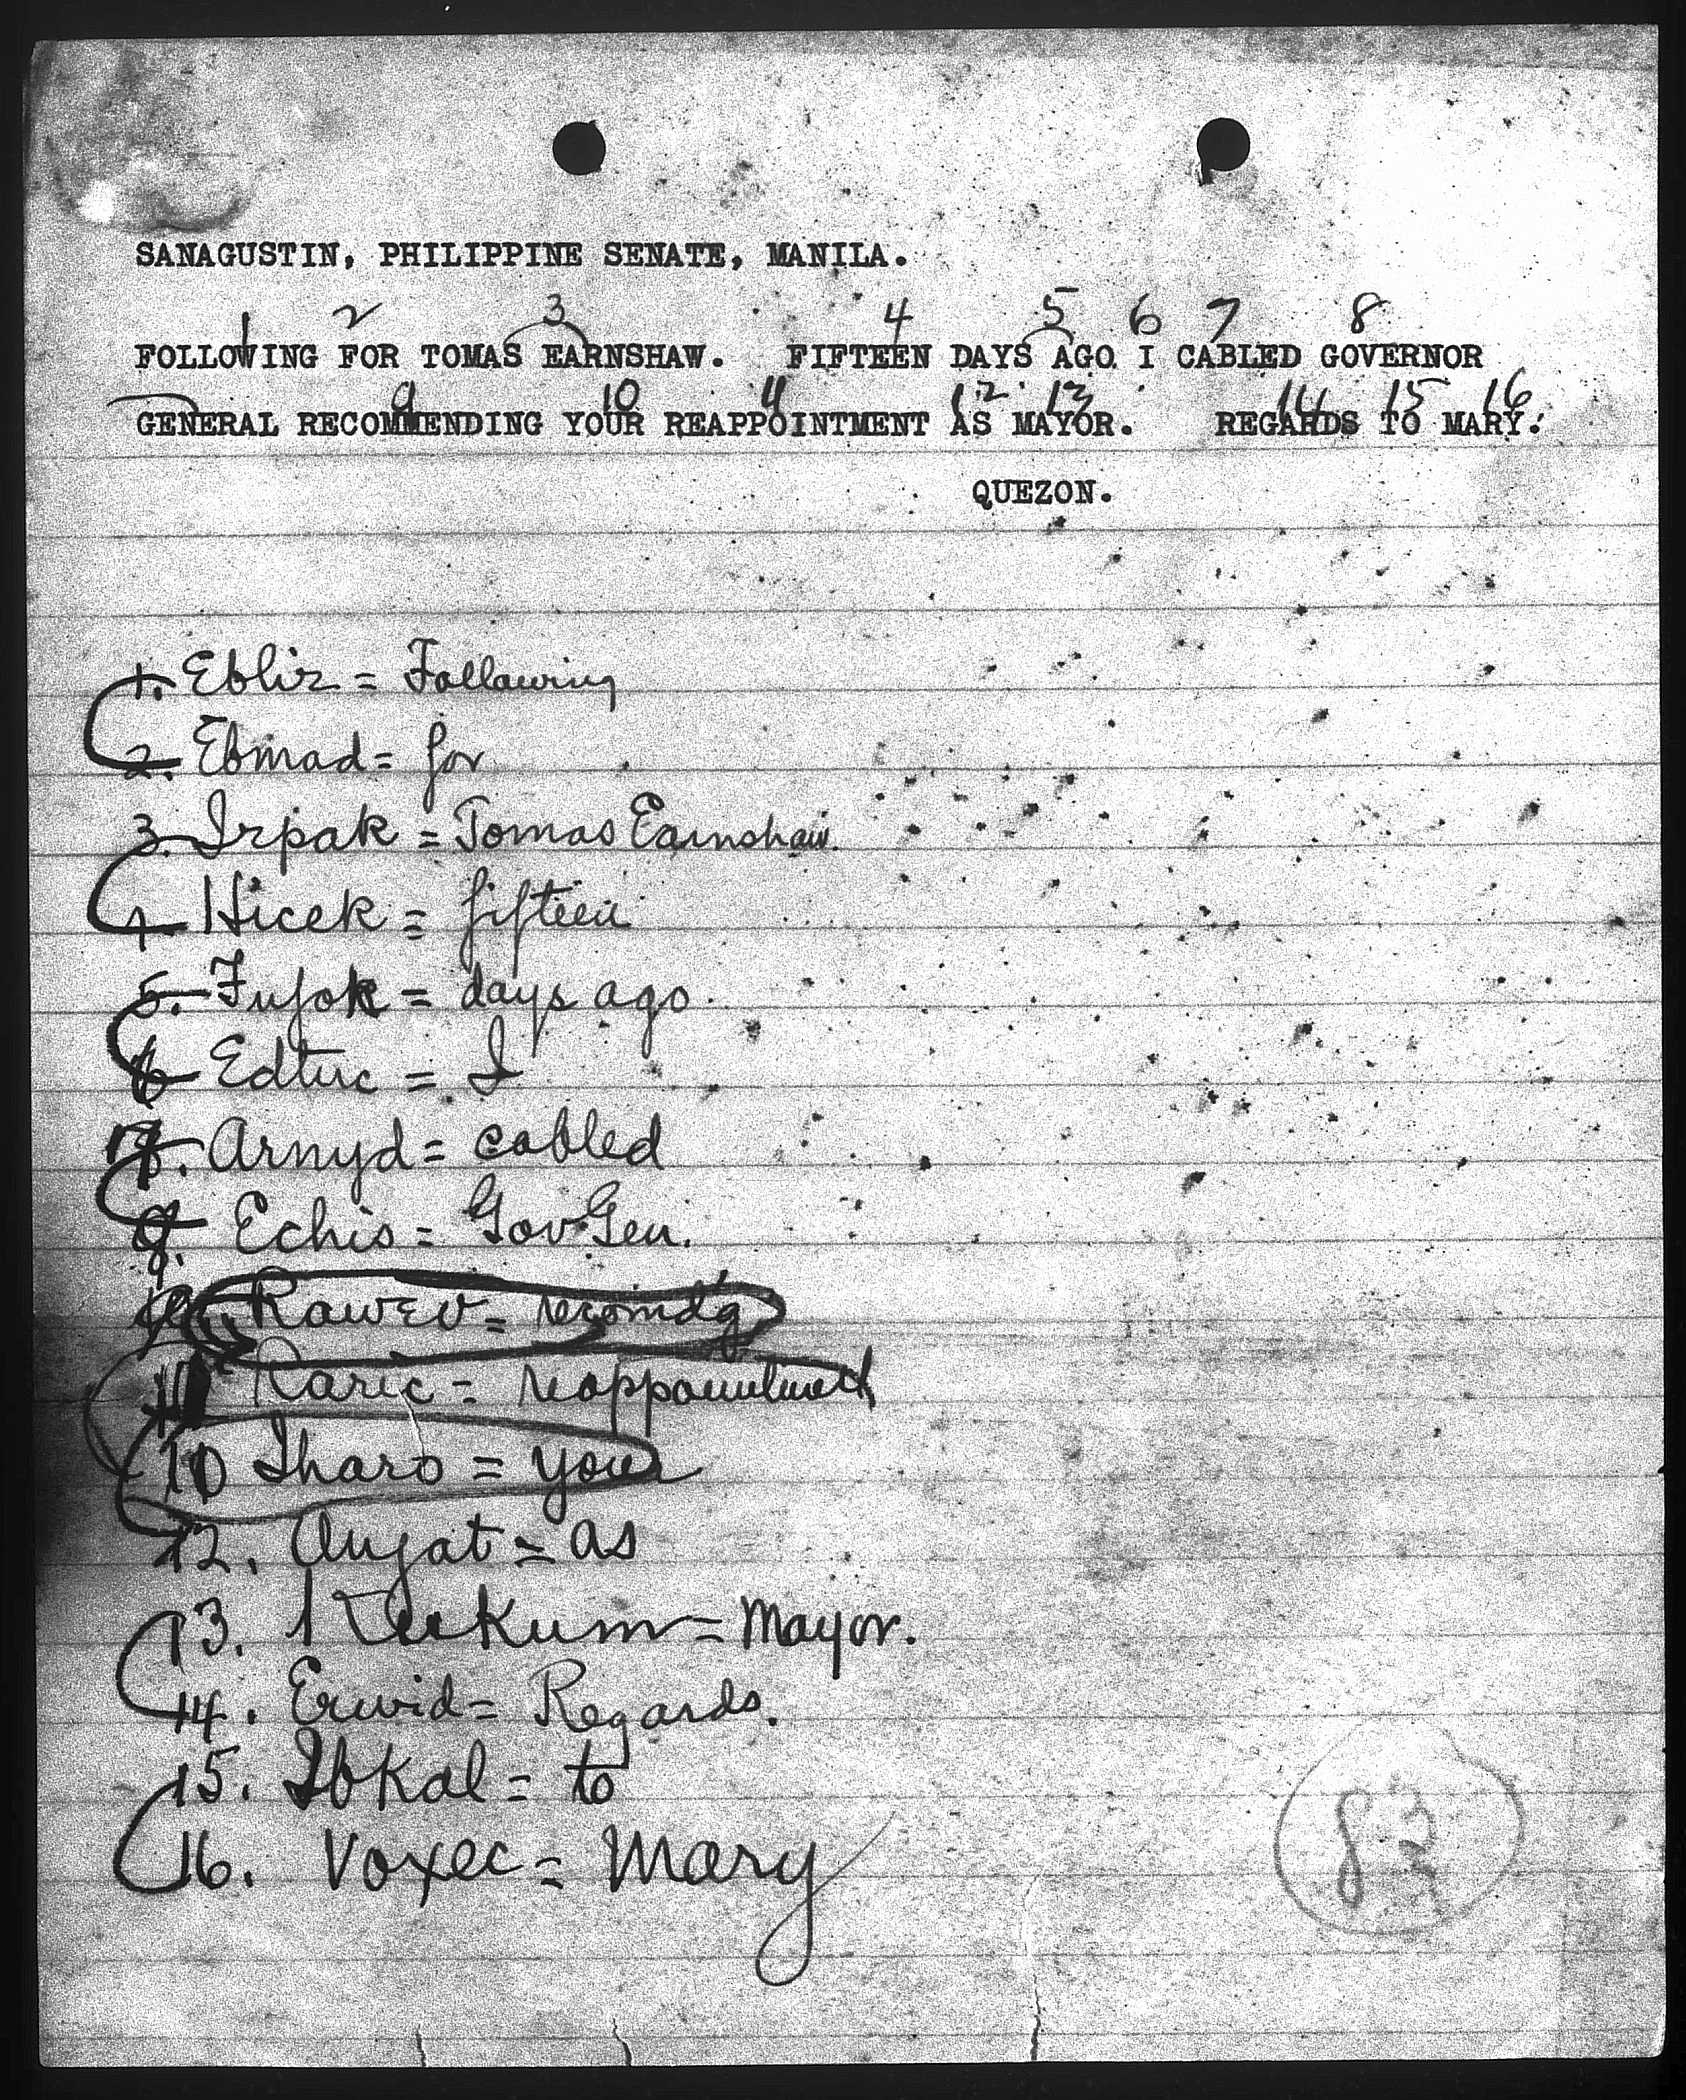 SANAGUSTIN, PHILIPPINE SENATE, MANILA.
1 2 3 4 5 6 7 8
FOLLOWING FOR TOMAS EARNSHAW. FIFTEEN DAYS AGO I CABLED GOVERNOR
9 10 11 12 13 14 15 16
GENERAL RECOMMENDING YOUR REAPPOINTMENT AS MAYOR. REGARDS TO MARY.
QUEZON.
1. Eblir = Following
2. Ebmad = for
3. Irpak = Tomas Earnshaw.
4. Hicek = fifteen
5. Fujok = days ago.
6 Edtuc = I
7. Arnyd = cabled
8. Echis = Gov Gen.
9. Rawev = recomdg
11 Raric = reappointment
10 Iharo = your
12. Aujat = as
13. kum = Mayor.
14. Erwid = Regards.
15. Ibkal = to
16. Voxec = Mary
83